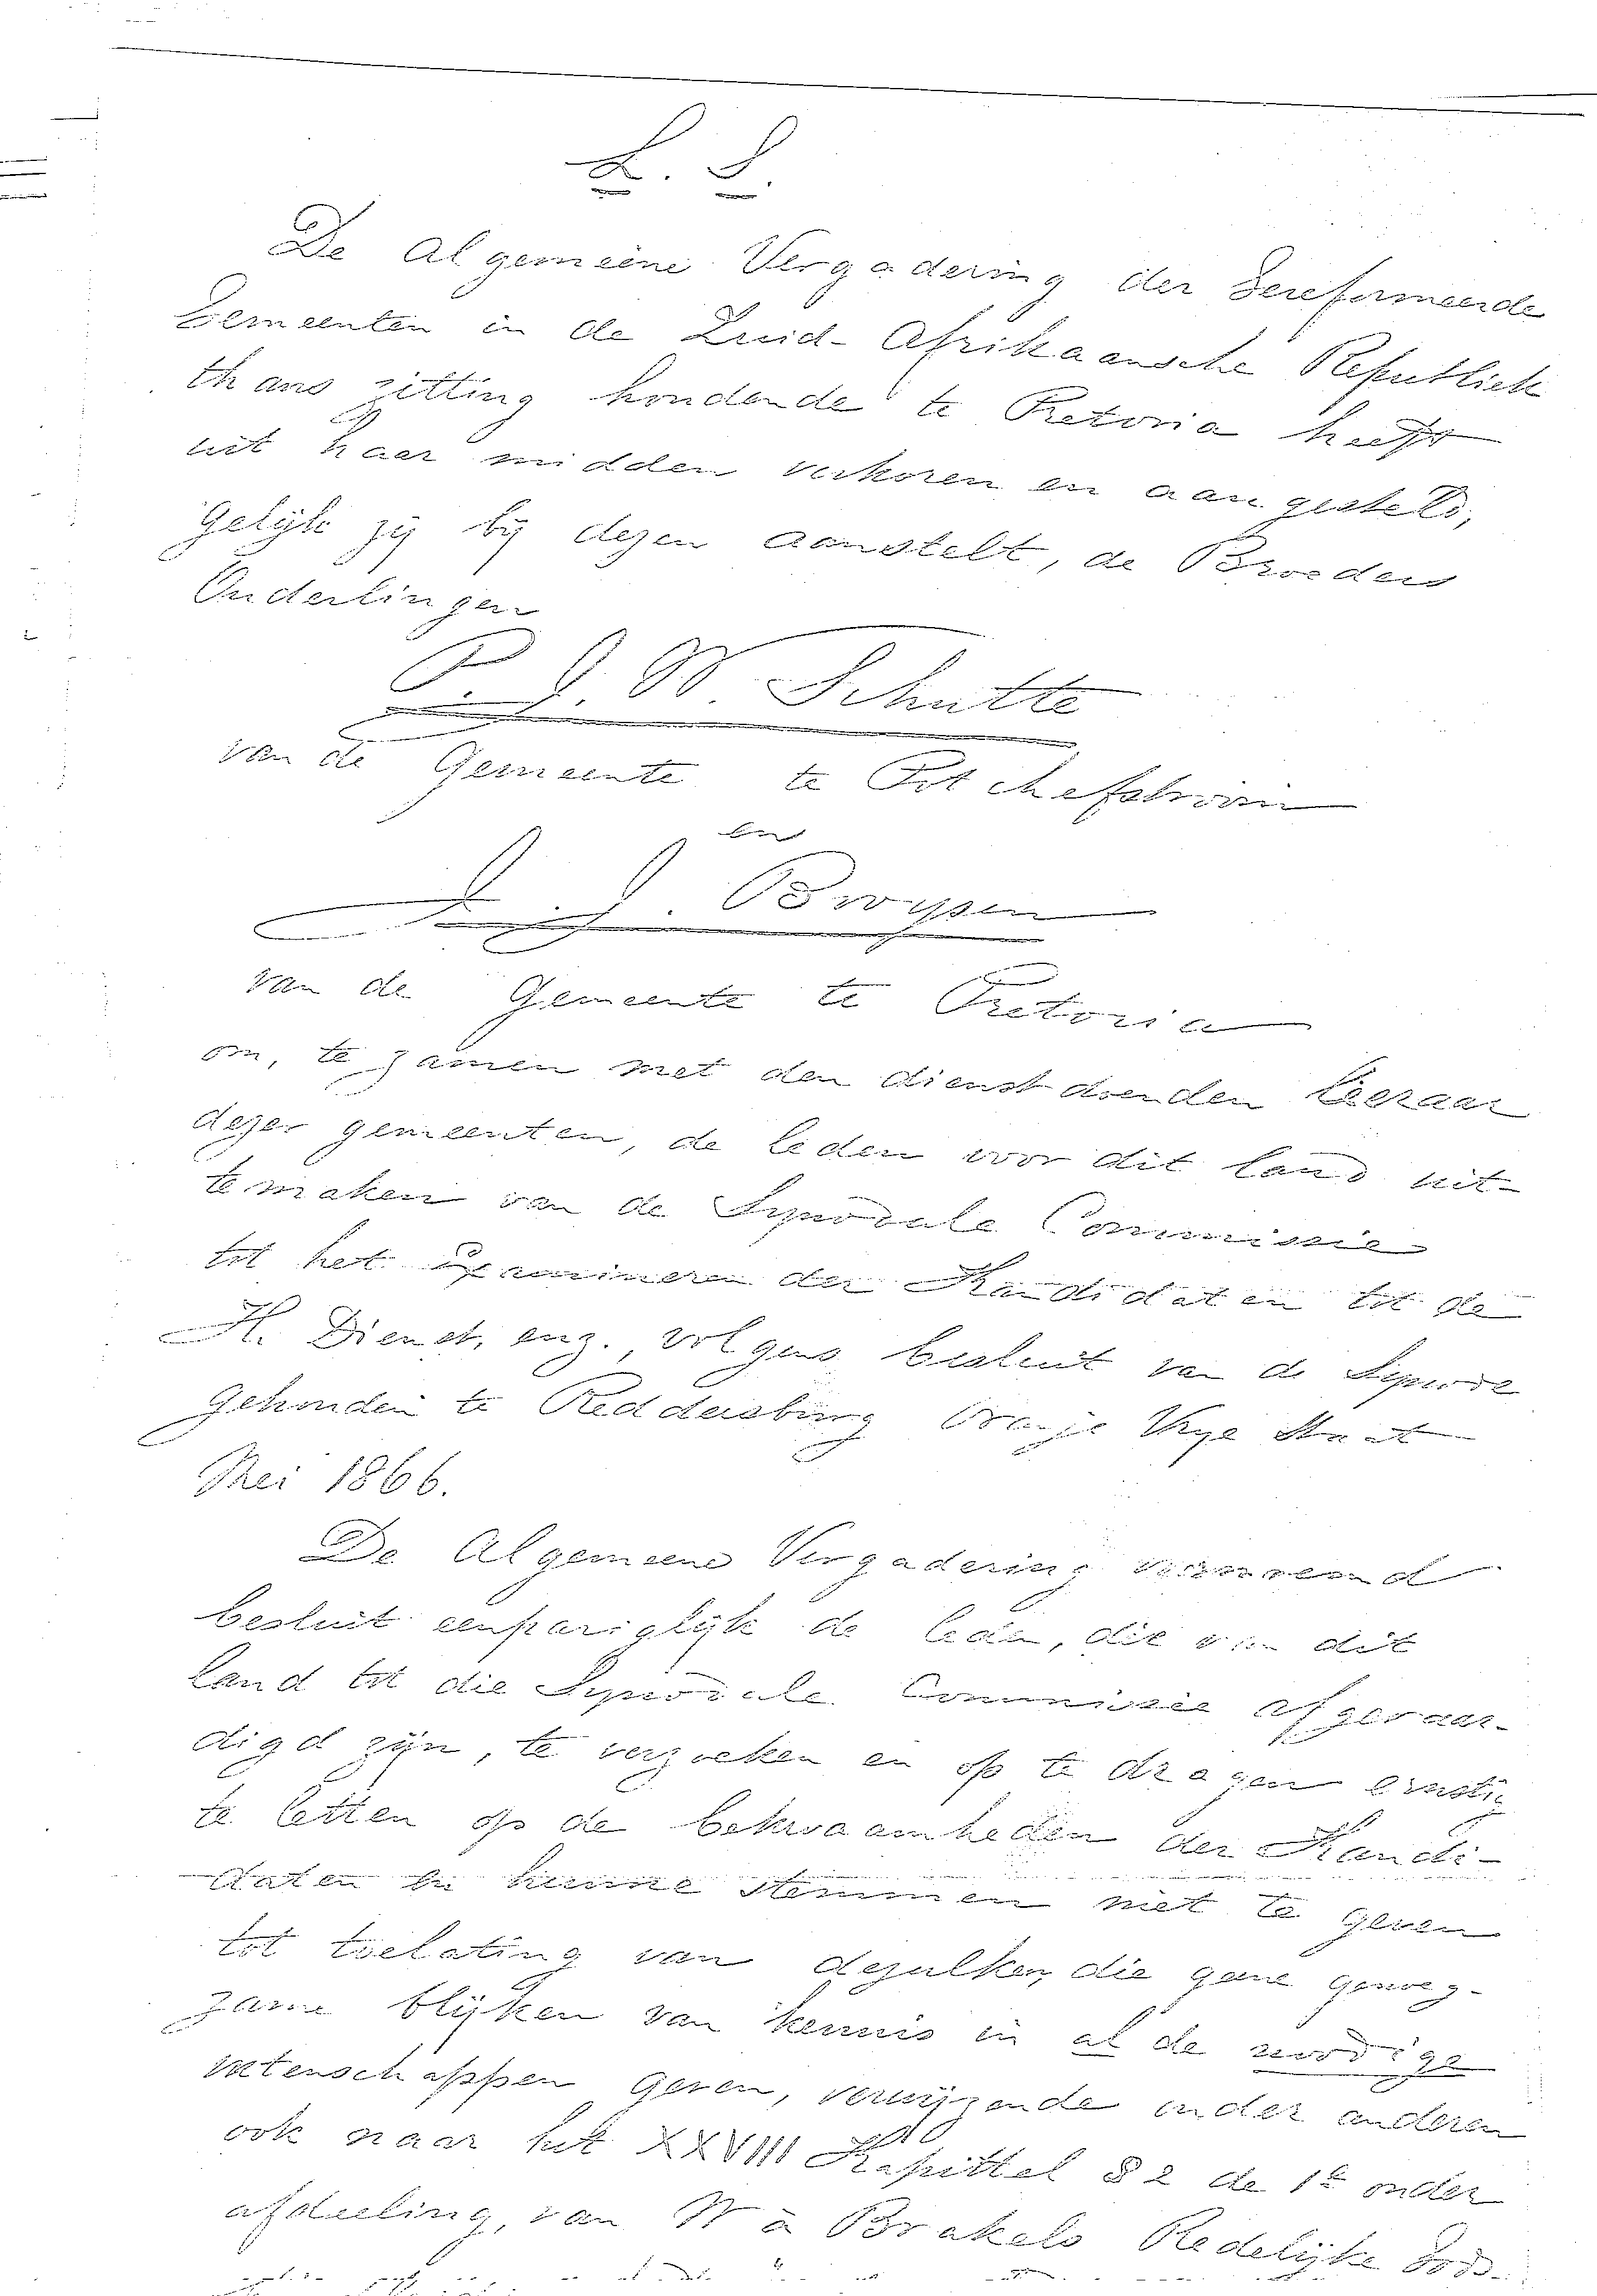 L. S.
De Algemeene Vergadering der Gereformeerde
Gemeenten in de Zuid-Afrikaansche Republiek
thans zitting houdende te Pretoria heeft
uit haar midden verkoren en aangesteld,
Gelijk zij bij dezen aanstelt, de Broeders
Ouderlingen
P. J. W Schutte
van de Gemeente te Potchefstroom
en
J. J. Bruysen
van de Gemeente te Pretoria
om, te zamen met den dienstdoenden Leeraar
dezer gemeenten, de leden voor dit land uit-
temaken van de Synodale Commissie
tot het Examineren der Kandidaten tot de
H. Dienst, enz., volgens besluit van de Synode
Gehouden te Reddersburg Oranje Vrye Staat
Mei 1866.
De Algemeene Vergadering voornoemd
besluit eenpariglijk de leden, die van dit
Land tot die Synodale Commissie afgevaar-
digd zijn, te verzoeken en op te dragen ernstig
te letten op de bekwaamheden der Kandi-
daten en hunne stemmen niet te geven
tot toelating van dezulken, die gene genoeg-
zame blijken van kennis in al de noodige
wetenschappen geven, verwijzende onder anderen
ook naar het XXVIII Kapittel § 2 de 1e onder
afdeeling, van W à Brakels Redelijke Gods-